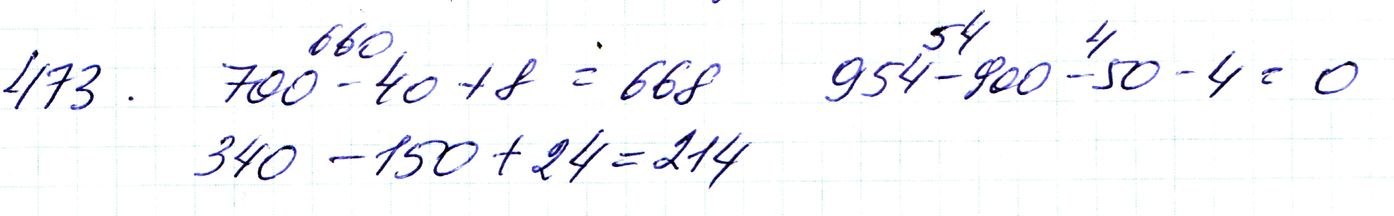 660 54 4
473. 700 - 40 + 8 = 668 954 - 900 - 50 - 4 = 0
340 - 150 + 24 = 214